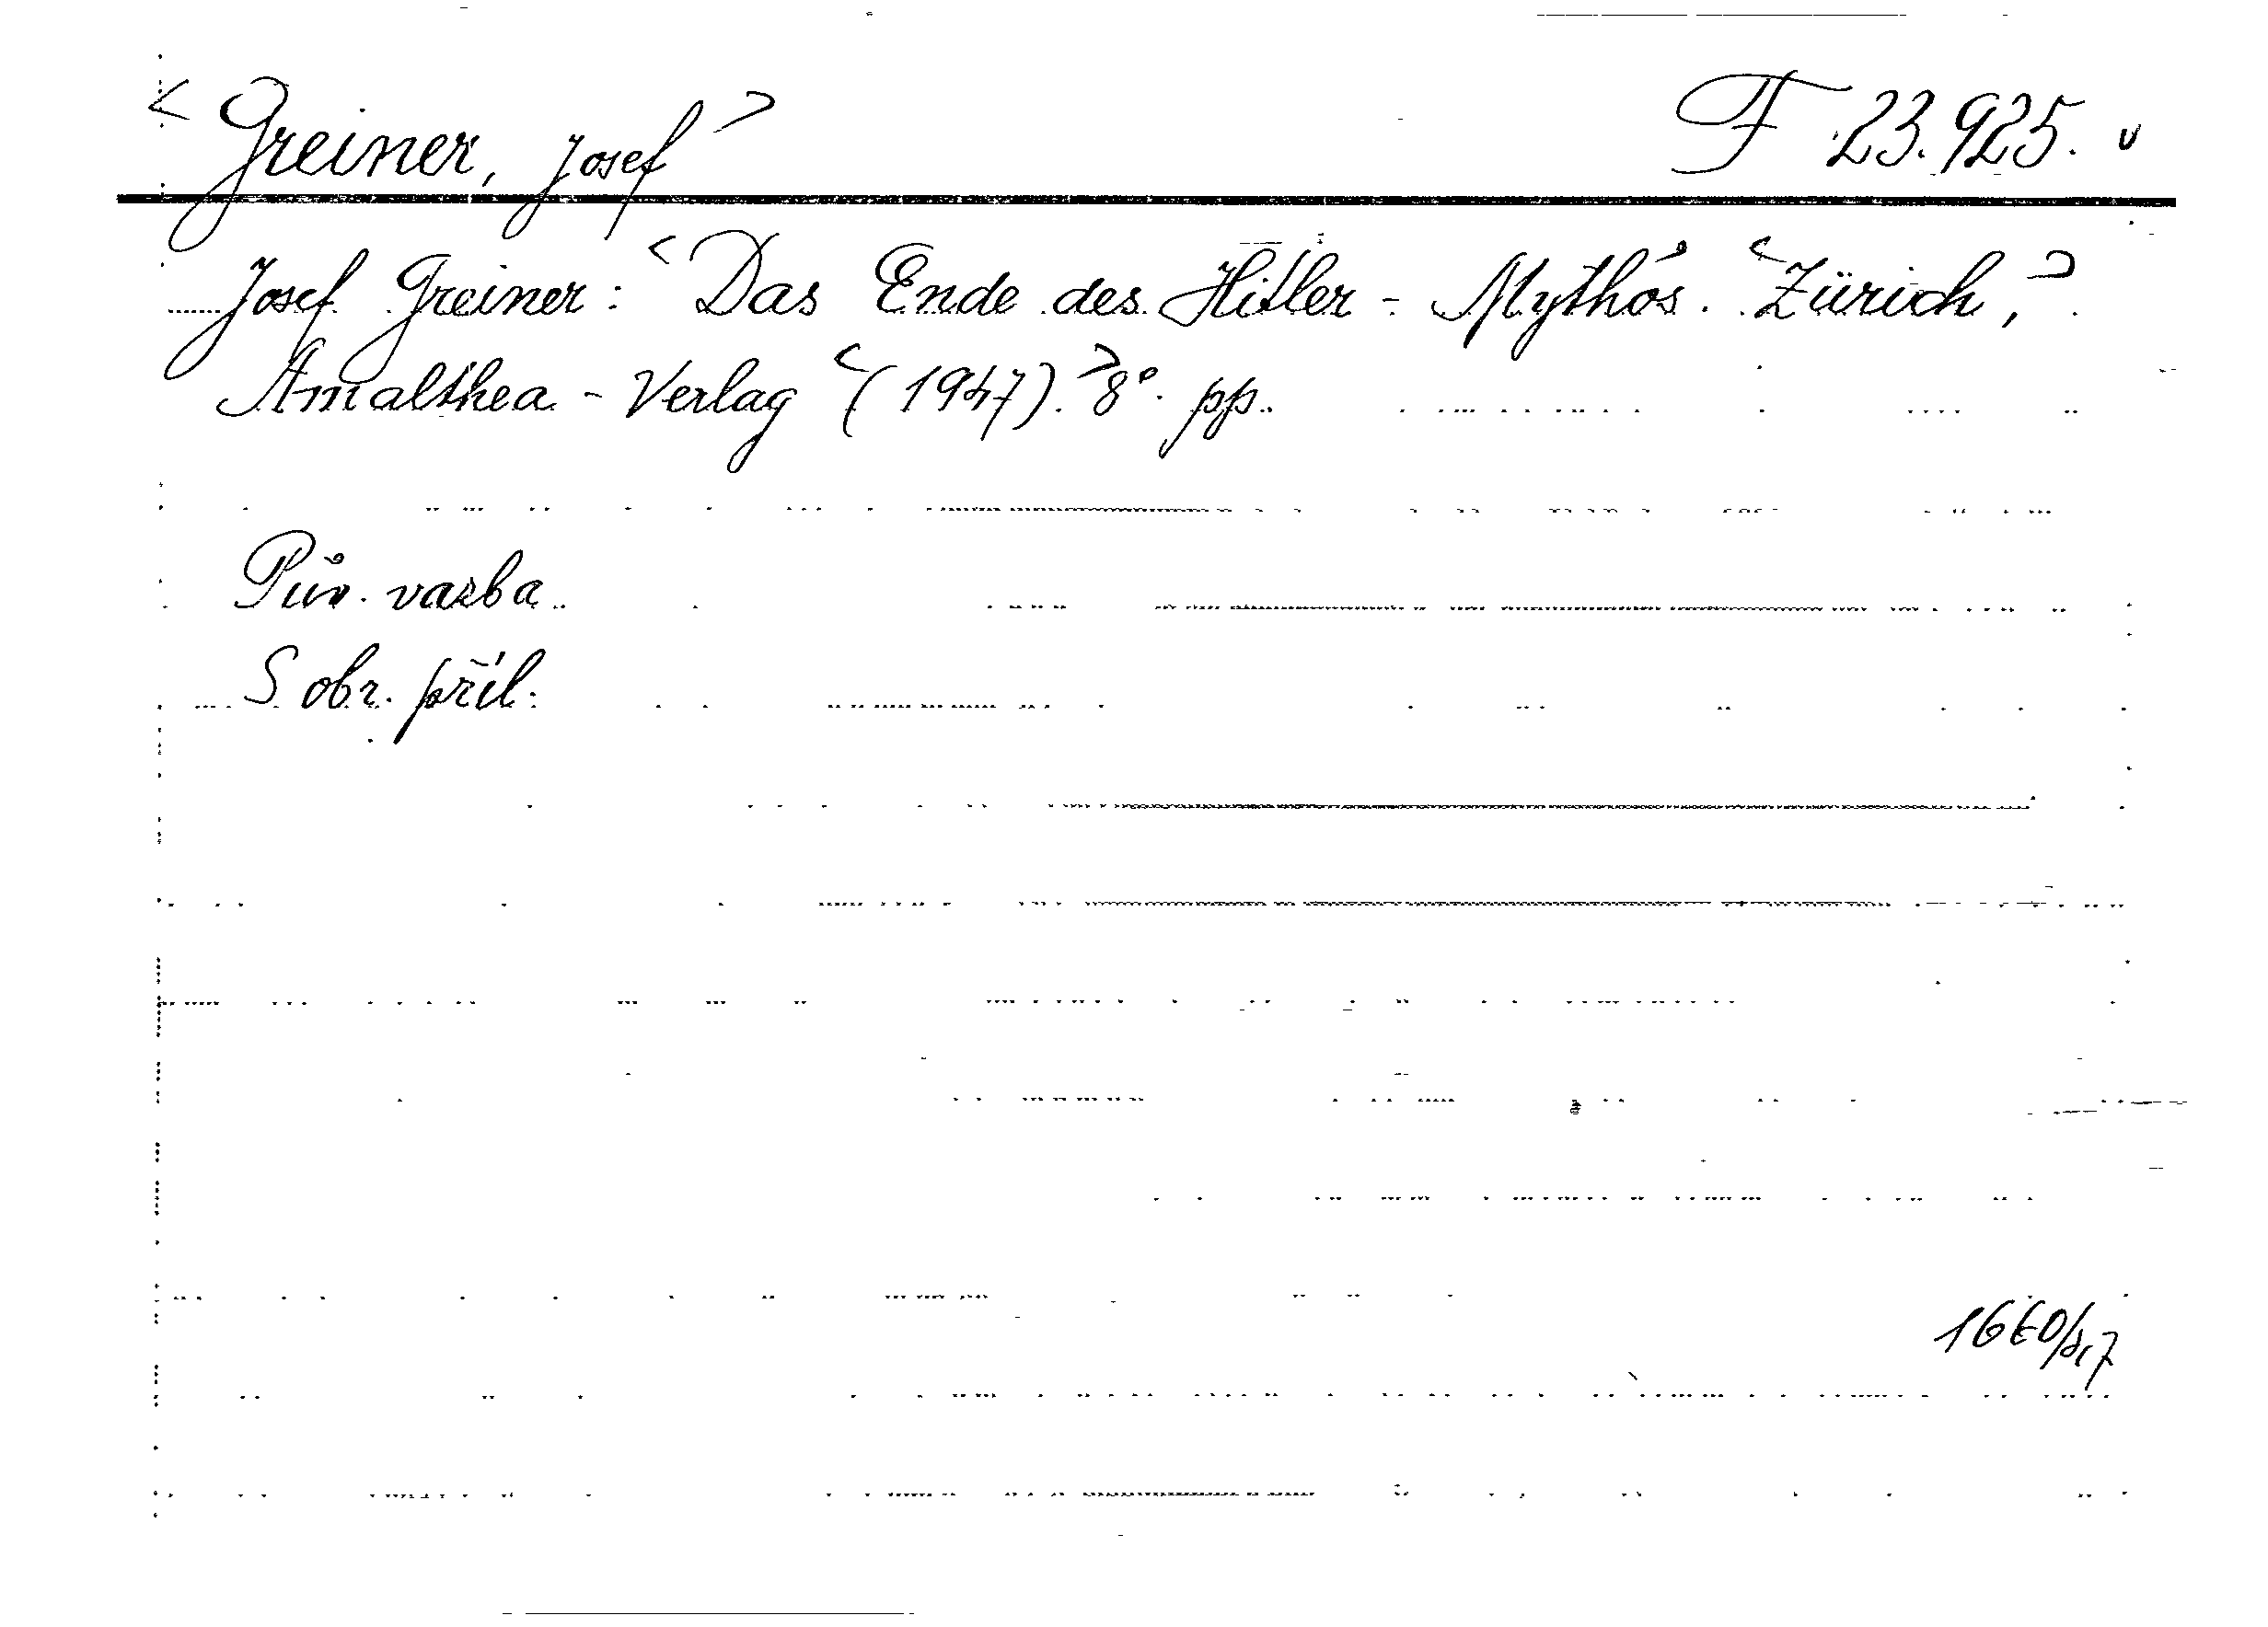 <Greiner, Josef> F 23.925.
Josef Greiner: <Das Ende des Hitler - Mythos. <Zürich,>
Amalthea - Verlag <(1947).> 8°. pp.
Pův. vazba
S obr. příl.